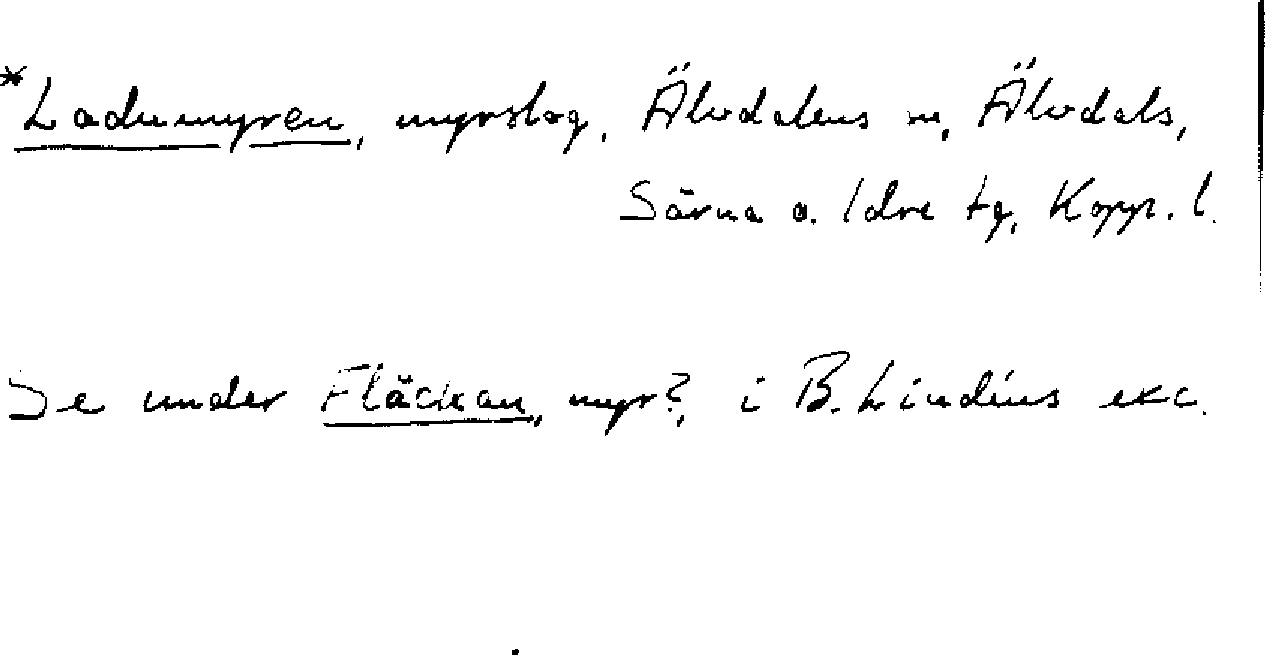 *Ladumyren, myrslog, Älvdalens sn, Älvdals,
Särna o. Idre tg, Kopp. l.
Se under Fläckan, myr?, i B. Lindéns exc.